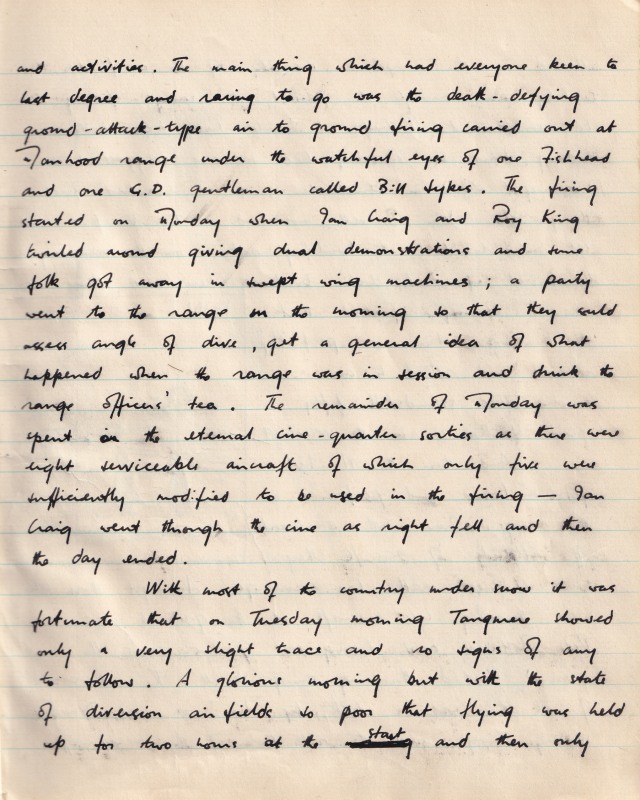 and activities. The main thing which had everyone keen to
last degree and raring to go was the death-defying
ground-attack-type air to ground firing carried out at
Manhood range under the watchful eyes of one Fishhead
and one G.D. gentleman called Bill Sykes. The firing
started on Monday when Ian Craig and Roy King
twirled around giving dual demonstrations and some
folk got away in swept wing machines; a party
went to the range in the morning so that they could
assess angle of dive, get a general idea of what
happened when the range was in session and drink the
range officers' tea. The remainder of Monday was
spent on the eternal cine-quarter sorties as there were
eight serviceable aircraft of which only five were
sufficiently modified to be used in the firing — Ian
Craig went through the cine as night fell and then
the day ended.
With most of the country under snow it was
fortunate that on Tuesday morning Tangmere showed
only a very slight trace and no signs of any
to follow. A glorious morning but with the state
of diversion airfields so poor that flying was held
up for two hours at the start and then only